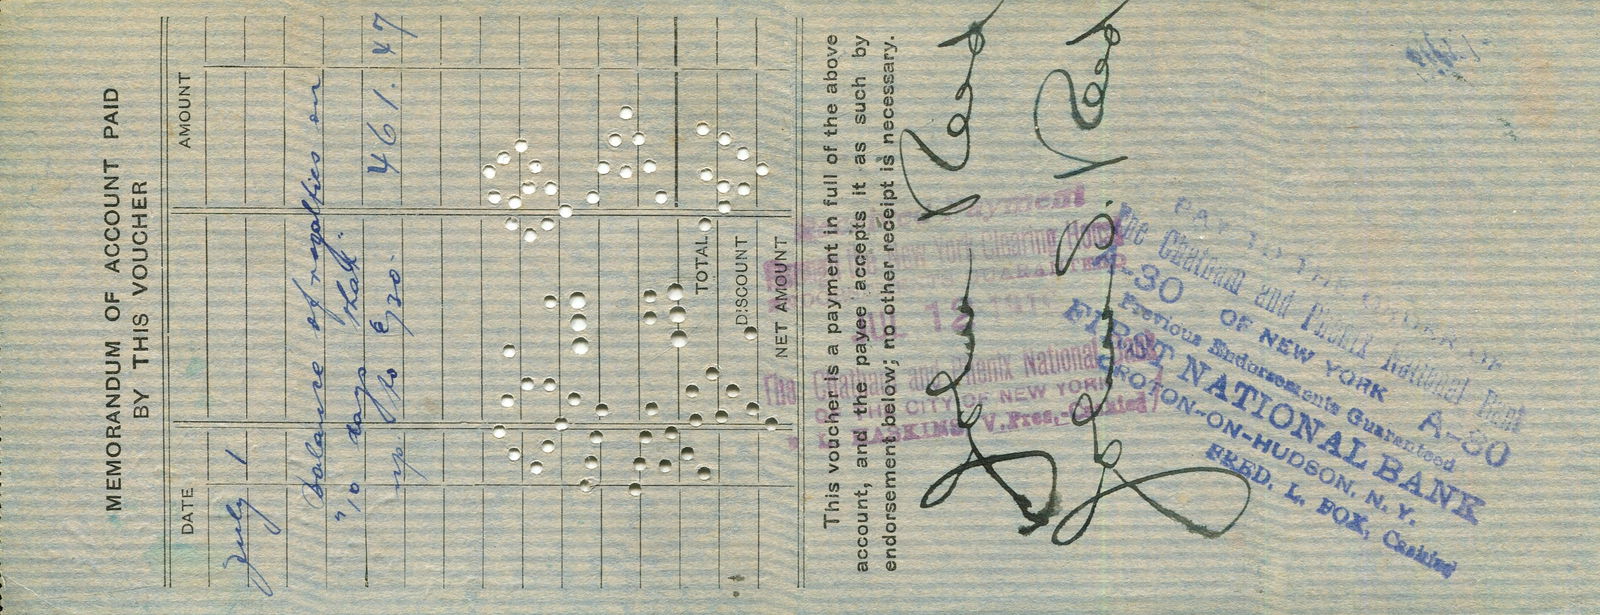 MEMORANDUM OF ACCOUNT PAID
BY THIS VOUCHER
DATE AMOUNT
July 1
Balance of royalties on
"10 days that
up to 6/30. 461.47
TOTAL
DISCOUNT
NET AMOUNT
This voucher is a payment in full of the above
account, and the payee accepts it as such by
endorsement below; no other receipt is necessary.
John Reed
Louise B. Reed
Payment
New York Clearing House
GUARANTEED
JUL 12
The Chatham and Phenix National Bank
OF THE CITY OF NEW YORK
HASKINS, V. Pres.-Cashier
PAY TO THE ORDER OF
The Chatham and Phenix National Bank
A-30 OF NEW YORK A-30
Previous Endorsements Guaranteed
FIRST NATIONAL BANK
CROTON-ON-HUDSON, N. Y.
FRED. L. FOX, Cashier